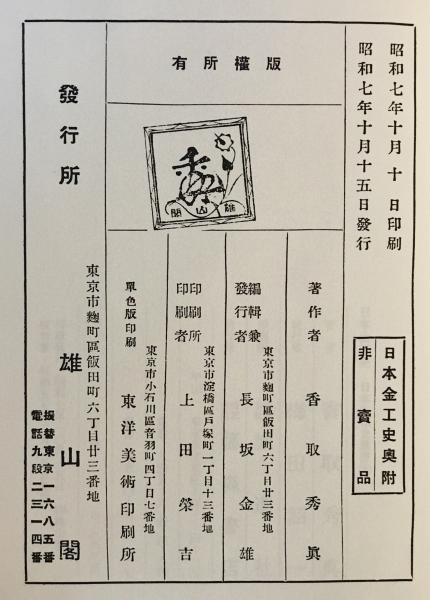 昭和七年十月十日印刷
昭和七年十月十五日發行
日本金工史奧附
非賣品
版權所有
雄山閣
著作者 香取秀眞
編輯兼發行者
東京市麴町區飯田町六丁目廿三番地
長坂金雄
印刷所印刷者
東京市淀橋區戶塚町一丁目十三番地
上田榮吉
單色版印刷
東京市小石川區音羽町四丁目七番地
東洋美術印刷所
發行所
東京市麴町區飯田町六丁目廿三番地
雄山閣
振替東京一六八五番
電話九段二三一四番